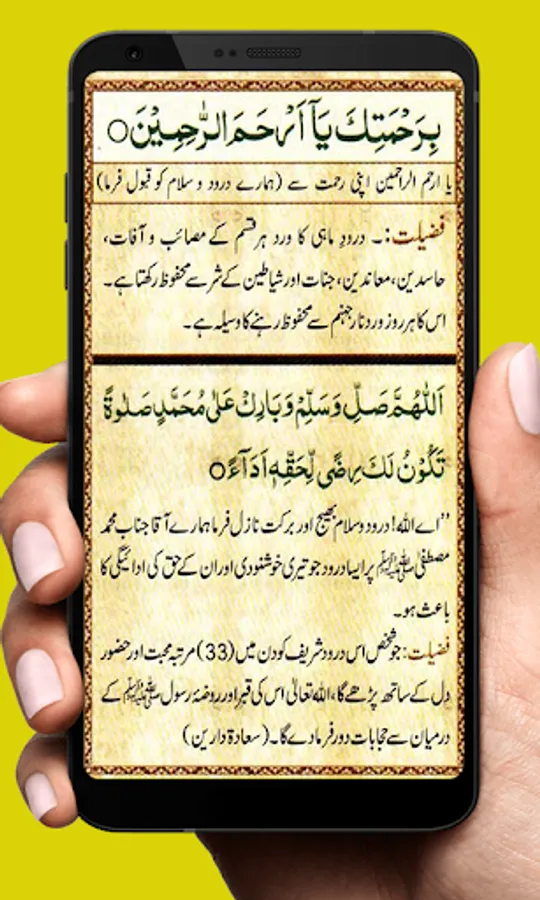 بِرَحْمَتِكَ يَآ اَرْحَمَ الرّٰحِمِيْنَ○
یا ارحم الراحمین اپنی رحمت سے (ہمارے درود و سلام کو قبول فرما)
فضیلت:۔ درودِ ماہی کا ورد ہر قسم کے مصائب و آفات،
حاسدین، معاندین، جنات اور شیاطین کے شر سے محفوظ رکھتا ہے۔
اس کا ہر روز ورد نارِ جہنم سے محفوظ رہنے کا وسیلہ ہے۔
اَللّٰهُمَّ صَلِّ وَسَلِّمْ وَبَارِكْ عَلٰى مُحَمَّدٍ صَلٰوةً
تَكُوْنُ لَكَ رِضًى لِّحَقِّهٖ اَدَآءً○
’’اے اللہ! درود وسلام بھیج اور برکت نازل فرما ہمارے آقا جناب محمد
مصطفیٰ ﷺ پر ایسا درود جو تیری خوشنودی اور ان کے حق کی ادائیگی کا
باعث ہو۔
فضیلت: جو شخص اس درود شریف کو دن میں (33) مرتبہ محبت اور حضور
دِل کے ساتھ پڑھے گا، اللہ تعالیٰ اس کی قبر اور روضۂ رسول ﷺ کے
درمیان سے حجابات دور فرما دے گا۔ (سعادۃ دارین)